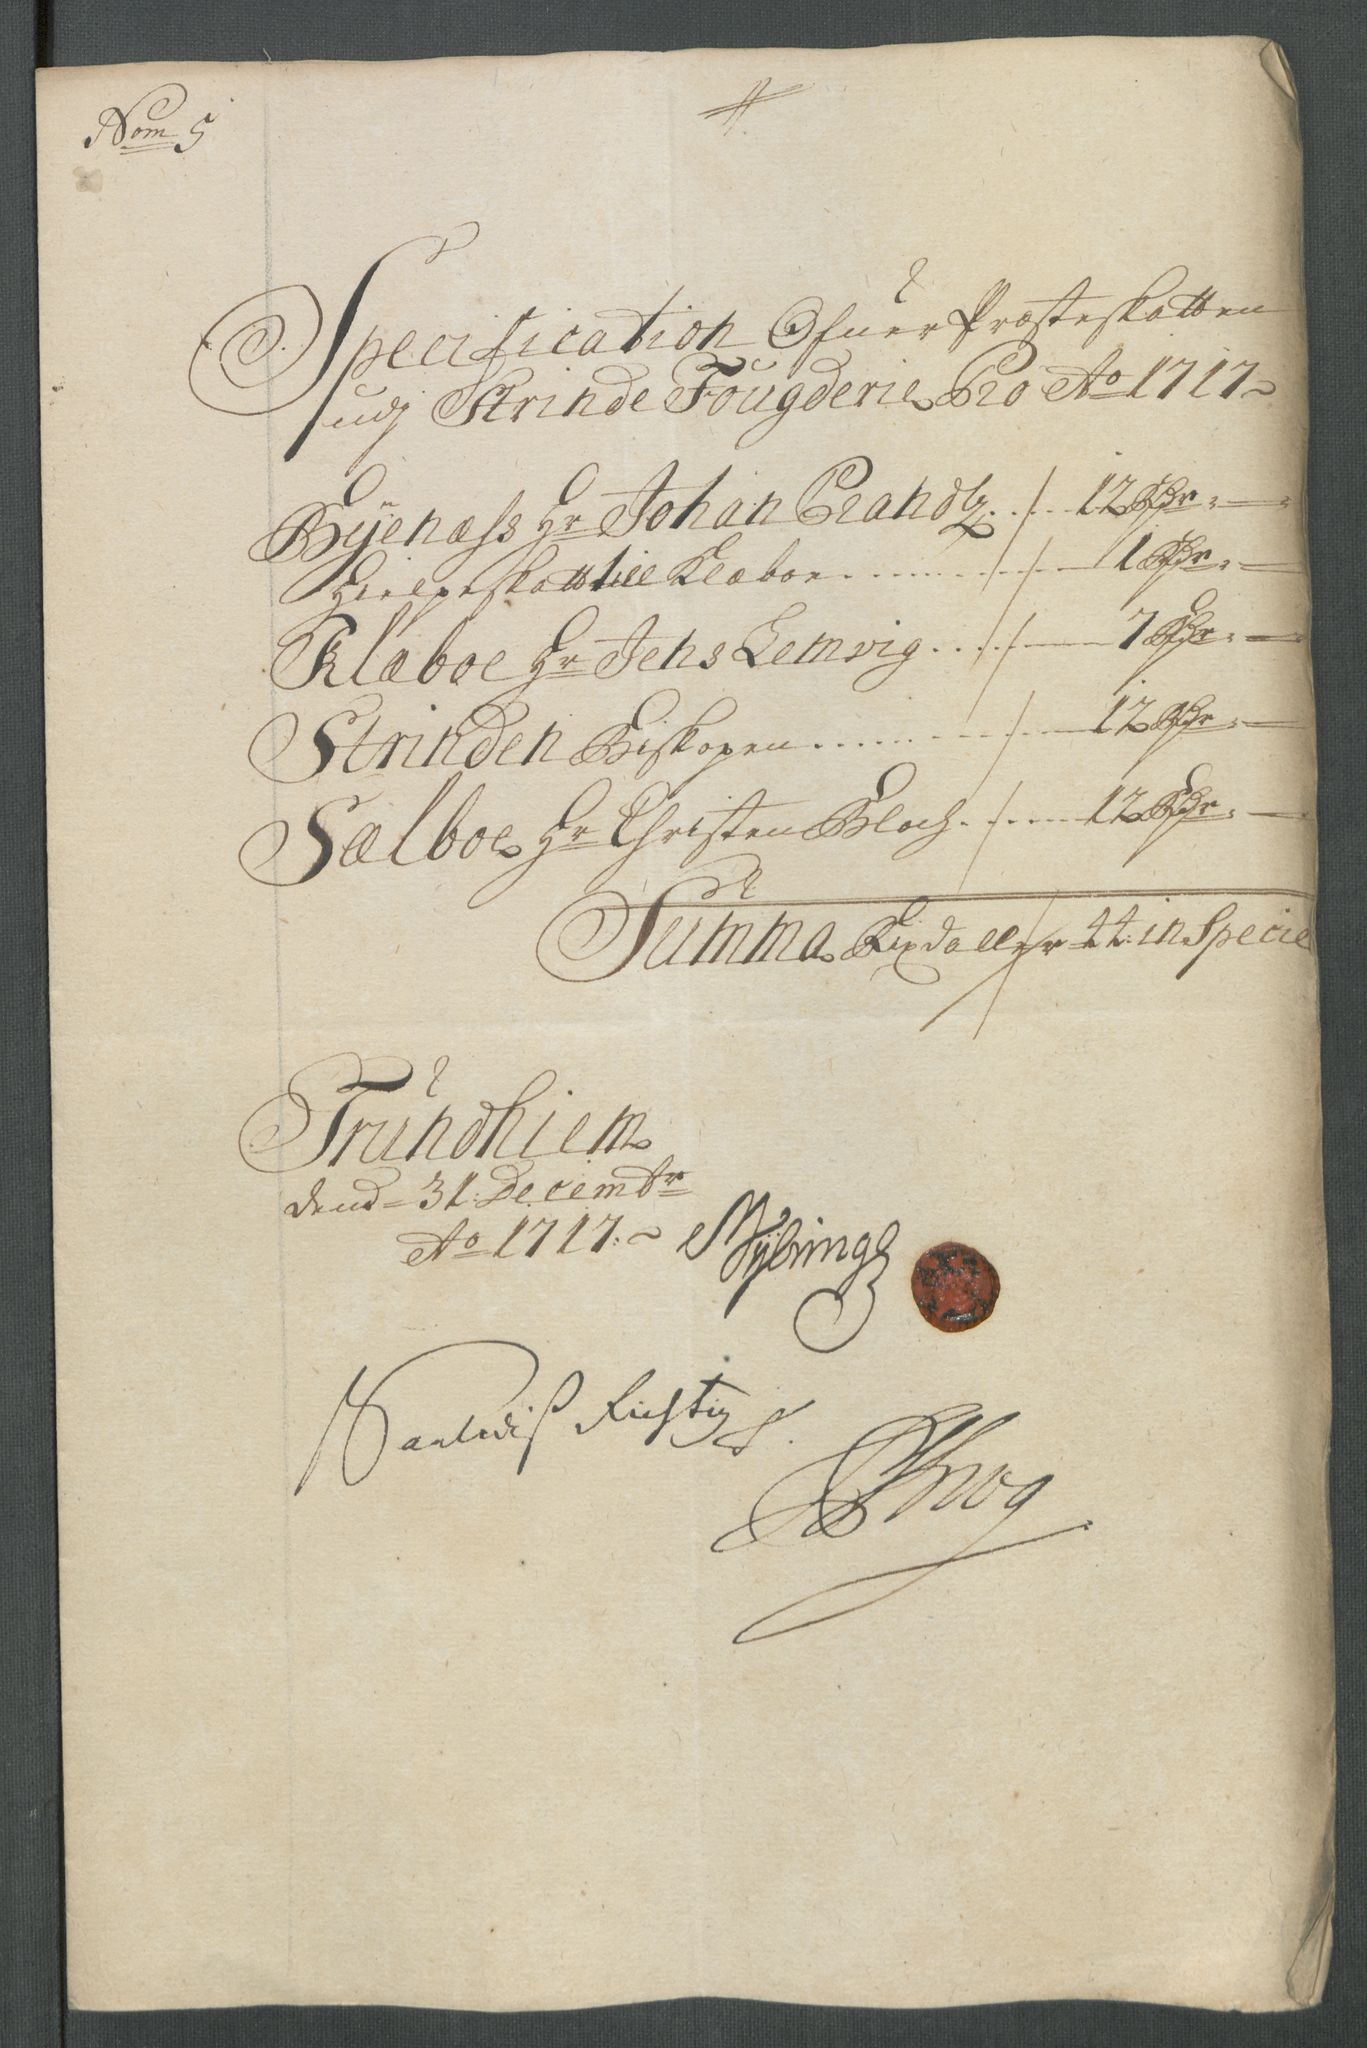 Nom 5
Specification Ofuer Præsteskatten
udj Strinde Fougderie Pro Ao 1717
Byenæss Hr Johan Brandtz 12 Rdr
Hielpeskatt till Klæboe 1 Rdr
Klæboe Hr Jens Lemvig 7 Rdr
Strinden Biskopen 12 Rdr
Sælboe Hr Christen Bloch 12 Rdr
Summa Rixdaller 44: in Specie
Trundhiem
dend 31: Decembr
Ao 1717:
Richtig